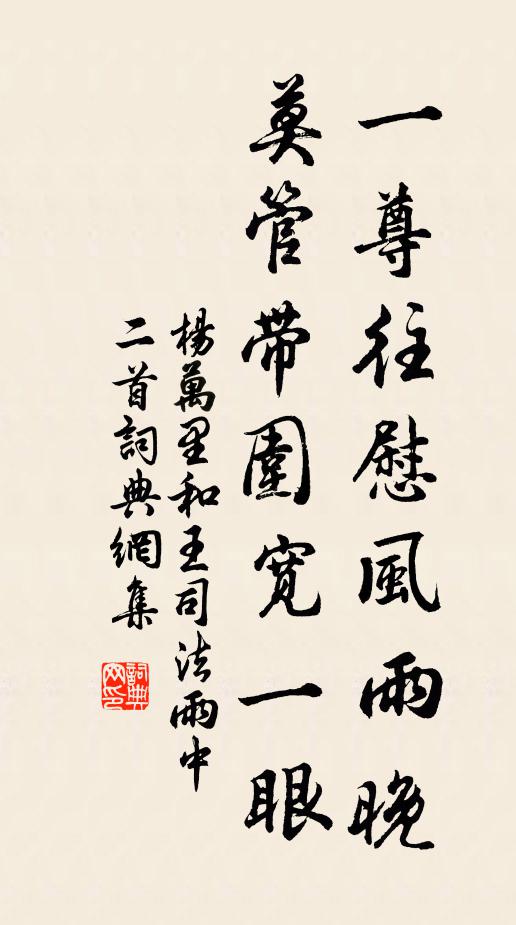 一尊往慰風雨晚
莫管帶圍寬一眼
楊萬里和王司法雨中
二首詞典網集
詞典網印